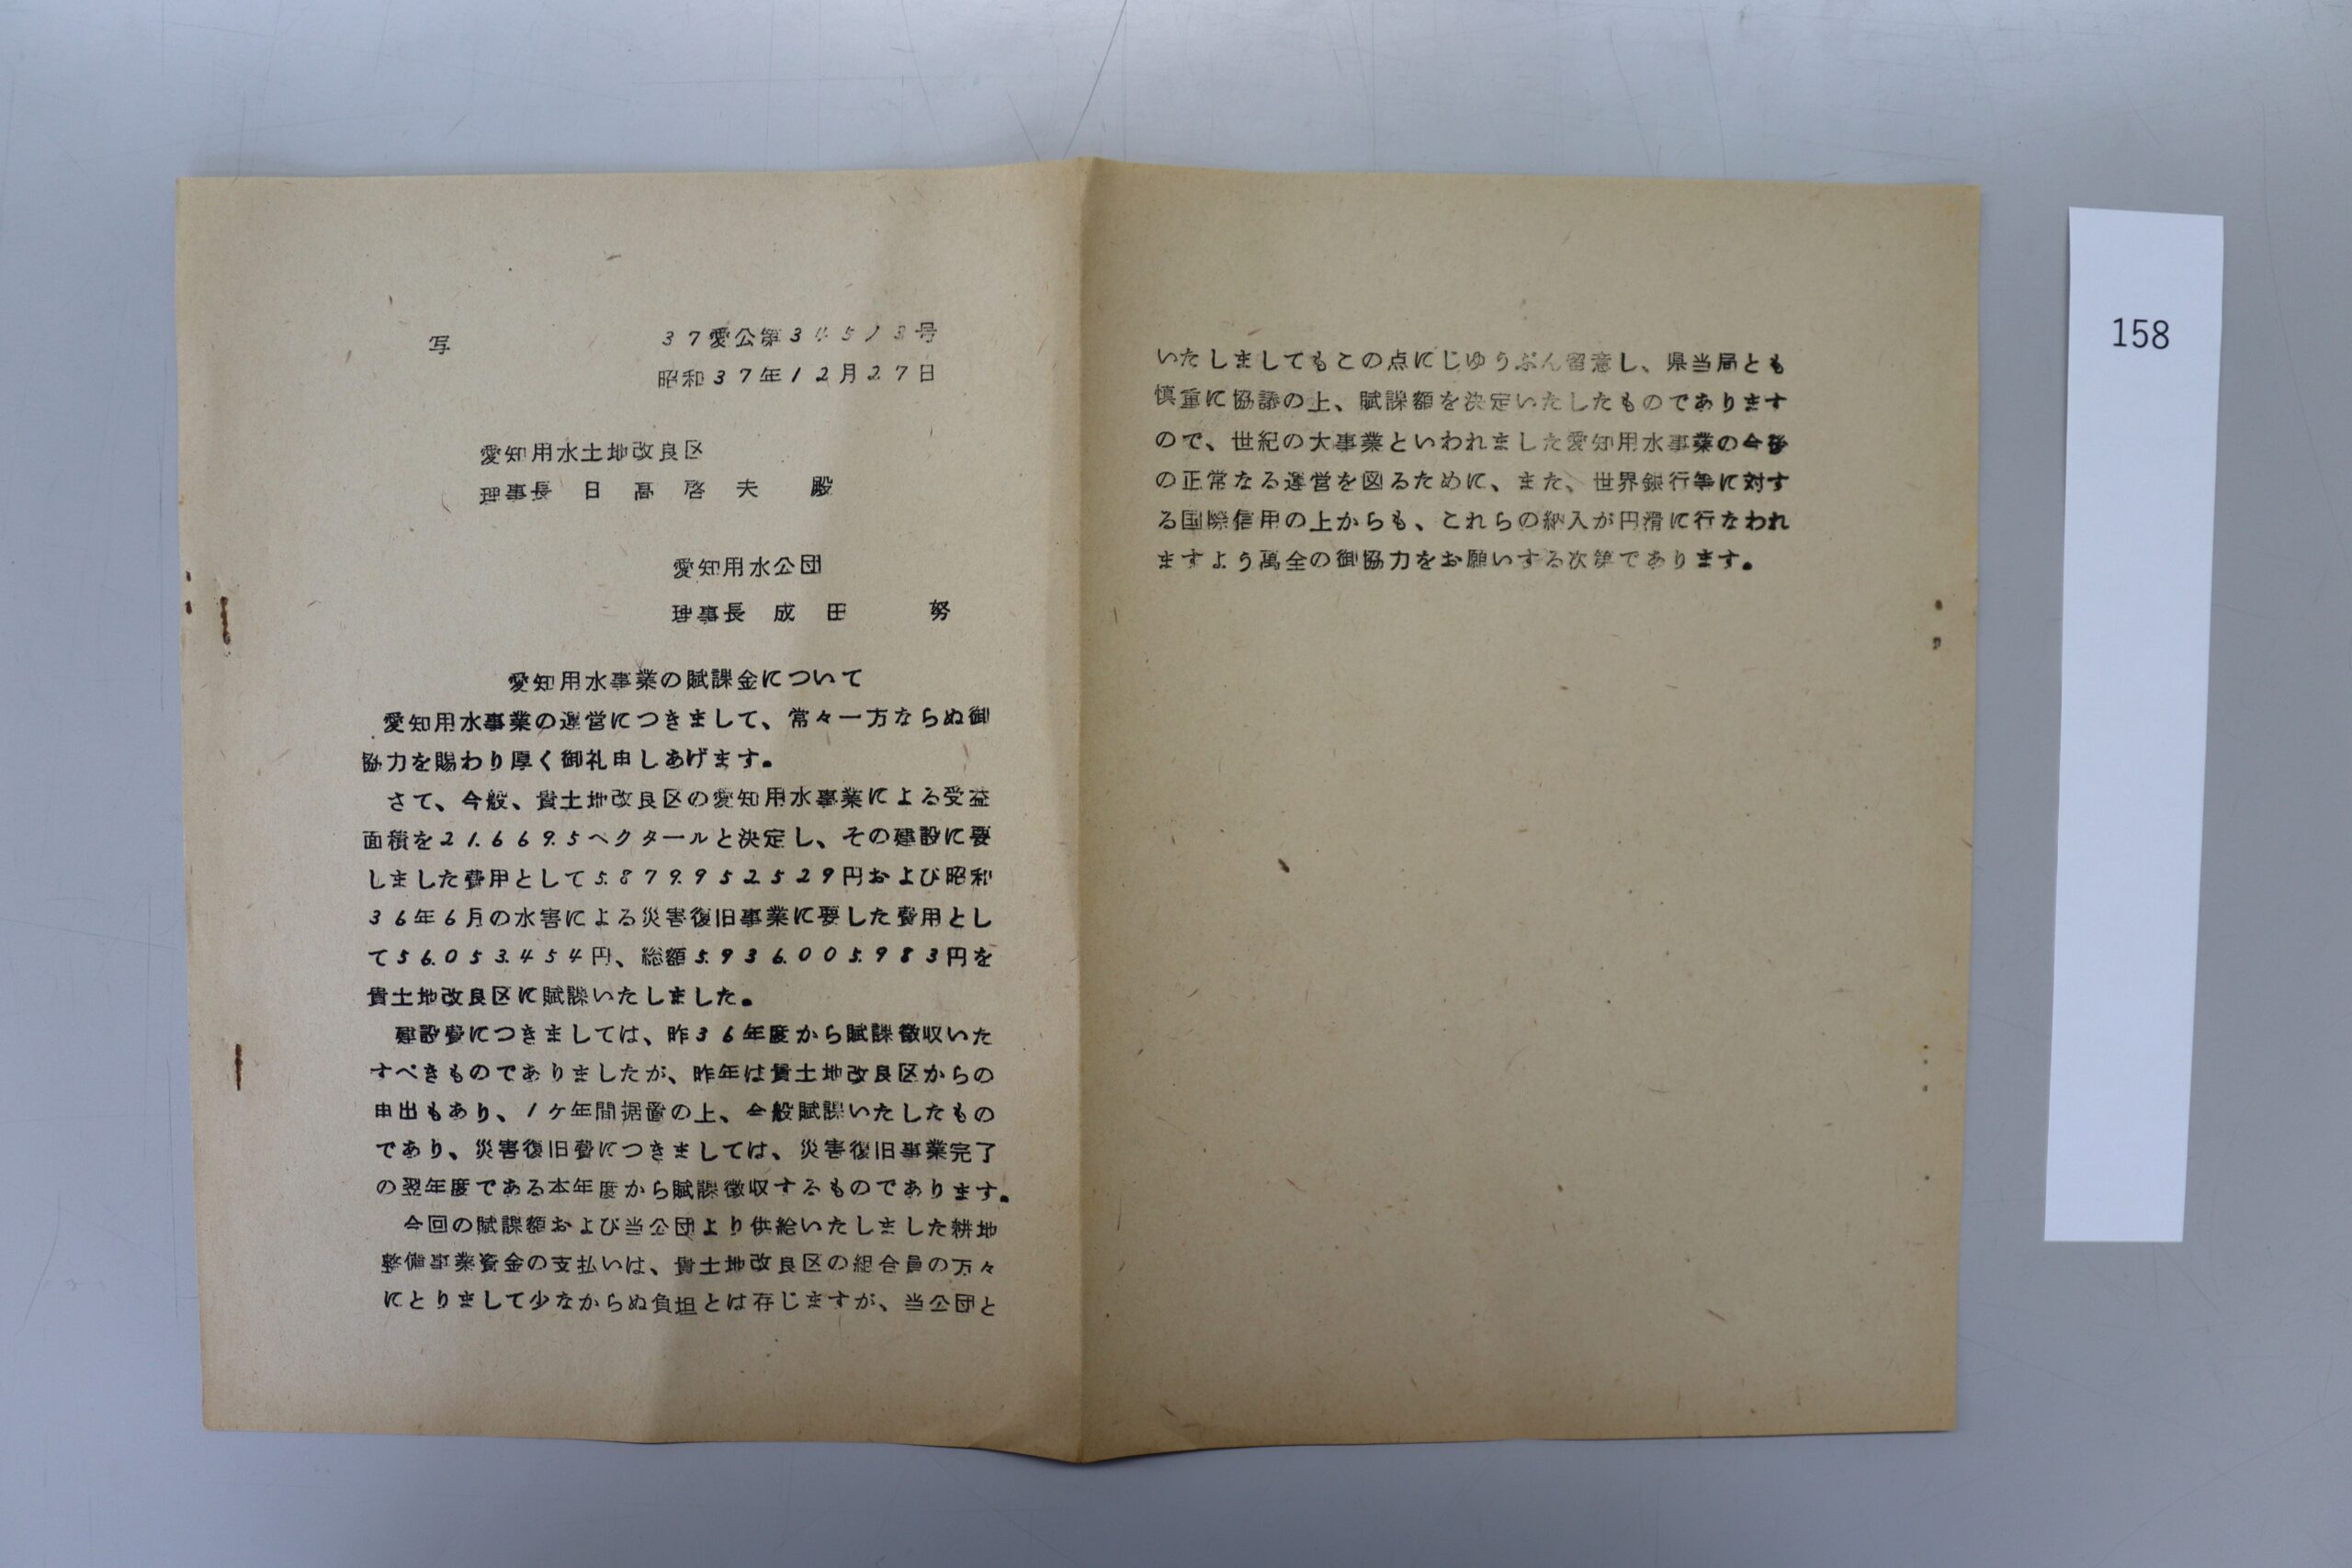 写
37愛公第34513号
昭和37年12月27日
愛知用水土地改良区
理事長 日 髙 啓 夫 殿
愛知用水公団
理事長 成 田 努
愛知用水事業の賦課金について
愛知用水事業の運営につきまして、常々一方ならぬ御
協力を賜わり厚く御礼申しあげます。
さて、今般、貴土地改良区の愛知用水事業による受益
面積を21.669.5ヘクタールと決定し、その建設に要
しました費用として5.879.952.529円および昭和
36年6月の水害による災害復旧事業に要した費用とし
て56.053.454円、総額5.936.005.983円を
貴土地改良区に賦課いたしました。
建設費につきましては、昨36年度から賦課徴収いた
すべきものでありましたが、昨年は貴土地改良区からの
申出もあり、1ケ年間据置の上、今般賦課いたしたもの
であり、災害復旧費につきましては、災害復旧事業完了
の翌年度である本年度から賦課徴収するものであります。
今回の賦課額および当公団より供給いたしました耕地
整備事業資金の支払いは、貴土地改良区の組合員の万々
にとりまして少なからぬ負担とは存じますが、当公団と
いたしましてもこの点にじゆうぶん留意し、県当局とも
慎重に協議の上、賦課額を決定いたしたものであります
ので、世紀の大事業といわれました愛知用水事業の今後
の正常なる運営を図るために、また、世界銀行等に対す
る国際信用の上からも、これらの納入が円滑に行なわれ
ますよう萬全の御協力をお願いする次第であります。
158